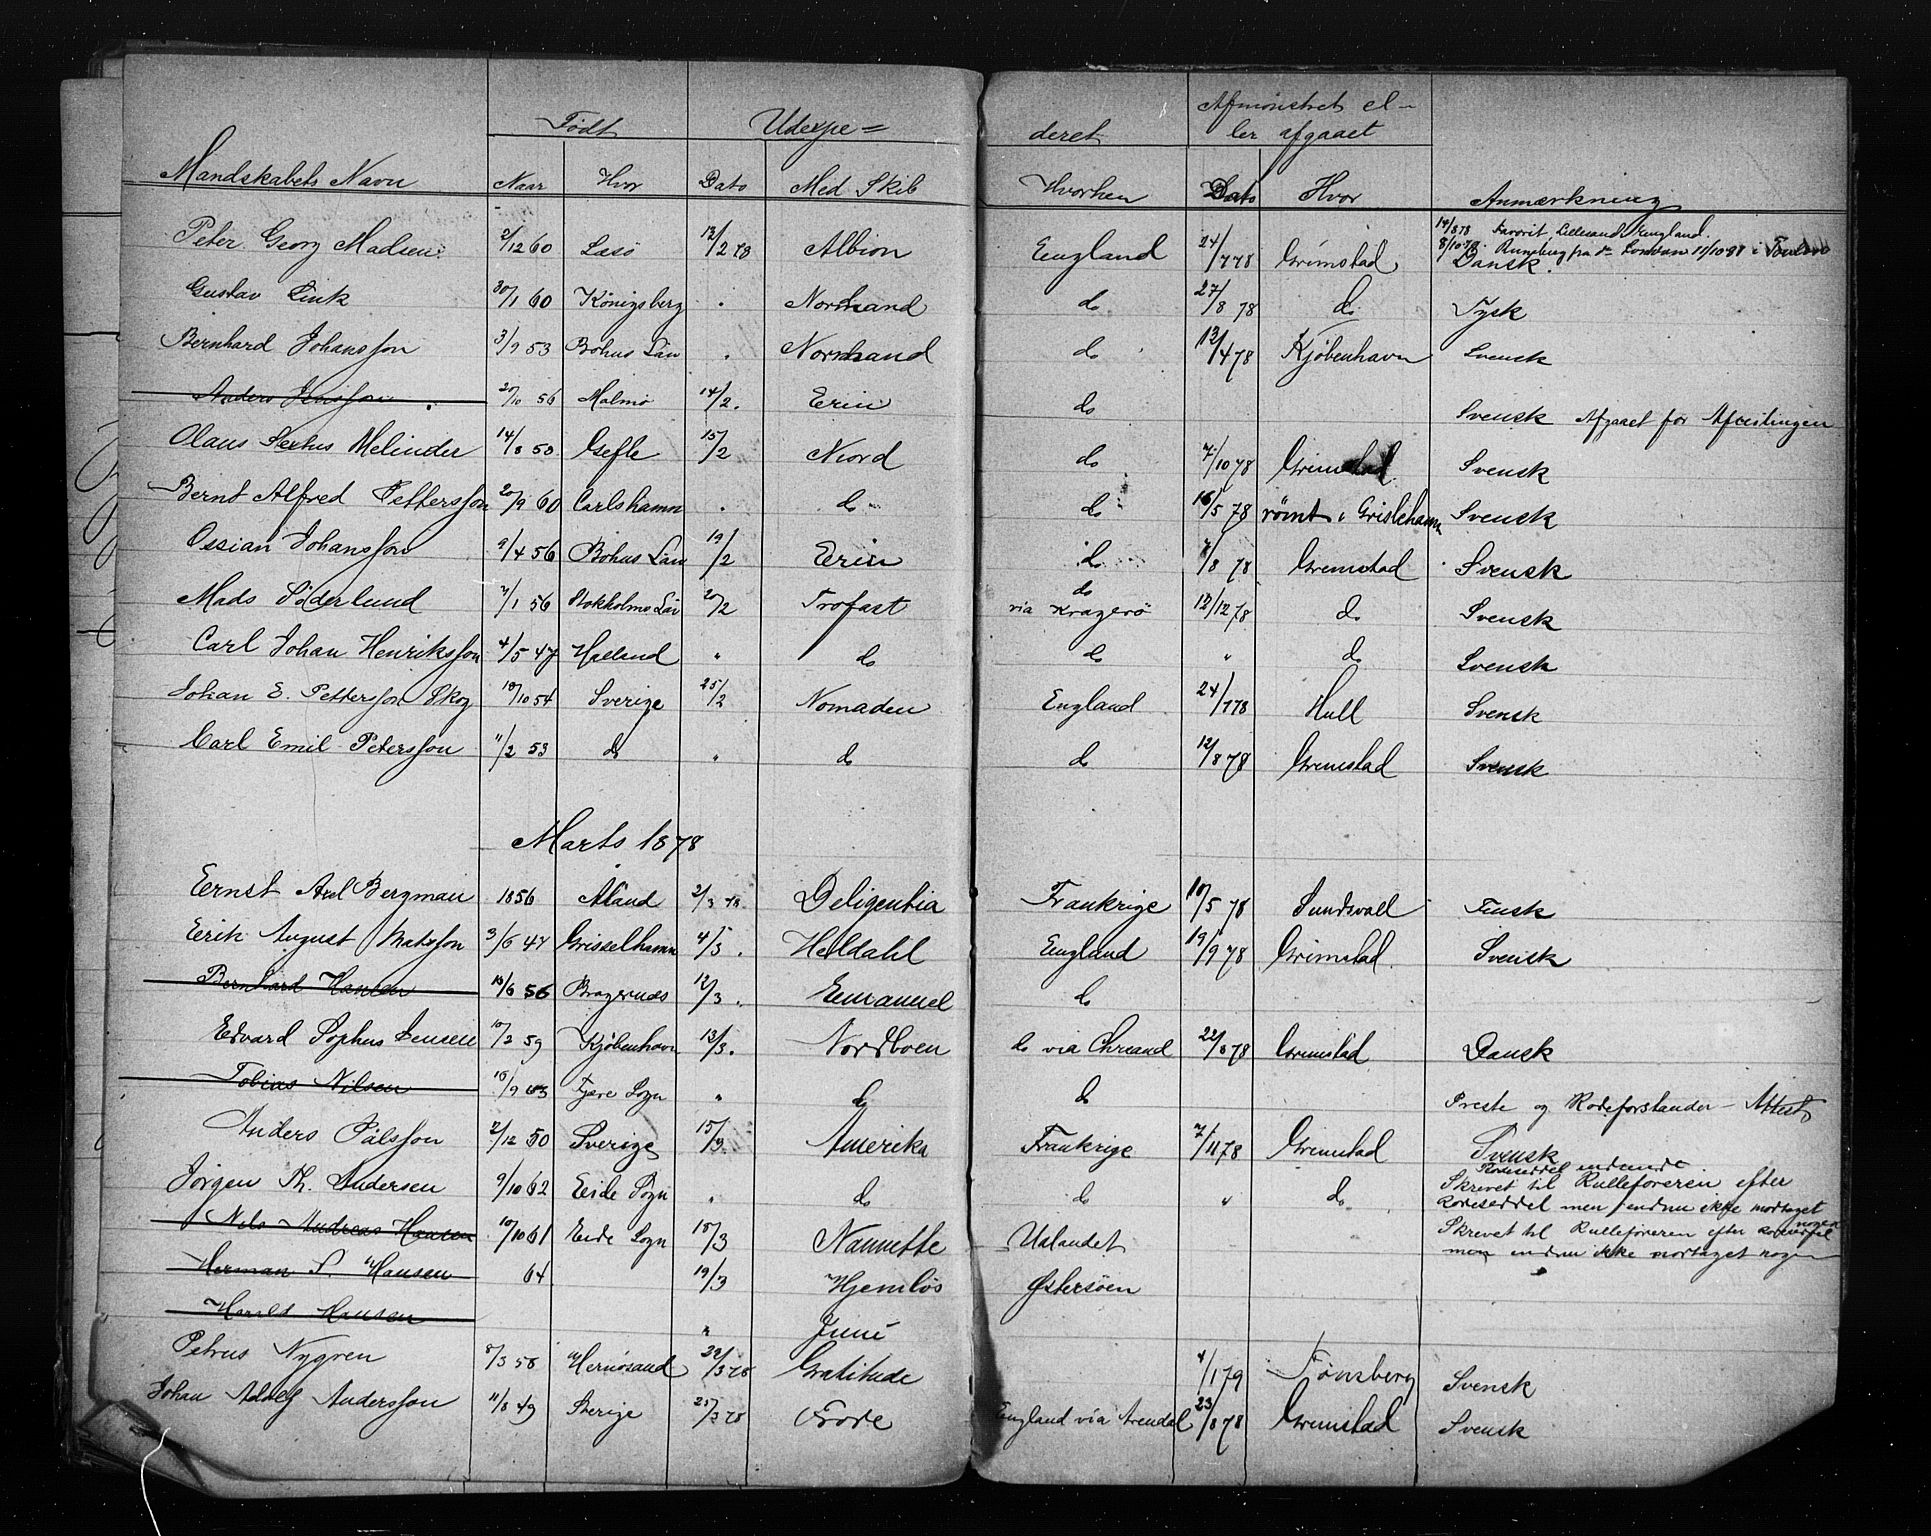 Mandskabets Navn | Født Naar | Hvor | Udexpe= Dato | Med Skib | deret Hvorhen | Afmønstret el- ler afgaaet Dato | Hvor | Anmærkning
Peter Georg Madsen | 2/12 60 | Læsø | 12/2 78 | Albion | England | 24/7 78 | Grimstad | 14/8 78 Favorit Lillesand England. 8/10 fra London 11/10 i Dansk.
Gustav Link | 30/1 60 | Königsberg | . | Normand | do | 27/8 78 | do | Tysk
Bernhard Johansson | 3/9 53 | Bohus Län | . | Normand | do | 12/4 78 | Kjøbenhavn | Svensk
Anders Jönsson | 20/10 56 | Malmö | 14/2. | Erin | do | | | Svensk Afgaaet før Afreisningen
Olaus Melinder | 14/8 53 | Gefle | 15/2 | Niord | do | 7/10 78 | Grimstad | Svensk
Bernt Alfred Pettersson | 20/9 60 | Carlshamn | . | do | do | 16/5 78 | rømt i Grislehamn | Svensk
Ossian Johansson | 9/4 56 | Bohus Län | 19/2 | Erin | do | 7/8 78 | Grimstad | Svensk
Mads Söderlund | 7/1 56 | Stokholms Län | 20/2 | Trofast | do via Kragerö | 12/12 78 | do | Svensk
Carl Johan Henriksson | 4/5 47 | Halland | " | do | do | " | do | Svensk
Johan E. Pettersson Skog | 10/10 54 | Sverige | 25/2 | Nomaden | England | 24/7 78 | Hull | Svensk
Carl Emil Petersson | 11/2 53 | do | " | do | do | 12/8 78 | Grimstad | Svensk
Marts 1878
Ernst Axel Bergman | 1856 | Åland | 2/3 78 | Deligentia | Frankrige | 10/5 78 | Sundsvall | Finsk
Erik August Matsson | 3/6 47 | Grisselhamn | 4/3. | Heldahl | England | 19/9 78 | Grimstad | Svensk
Bernhard Hansen | 16/6 56 | Bragernæs | 12/3. | Emanuel | do
Edvard Sophus Jensen | 10/2 59 | Kjøbenhavn | 13/3. | Nordboen | do via Chrsand | 22/8 78 | Grimstad | Dansk
Tobias Nilsen | 16/9 63 | Fjære Sogn | " | do | do | | | Preste og Rodeforstander-Attest
Anders Pålsson | 2/12 50 | Sverige | 15/3 | Amerika | Frankrige | 7/11 78 | Grimstad | Svensk
Jörgen Th. Andersen | 9/10 62 | Eide Sogn | " | do | do | " | do | Rodeseddel indsendt Skrevet til Rulleføreren efter Rodeseddel men endnu ikke modtaget nogen
Nils Andreas Hansen | 10/10 61 | Eide Sogn | 18/3 | Nannette | Udlandet | | | Skrevet til Rulleføreren efter Rodeseddel men endnu ikke modtaget nogen
Herman S. Hansen | 64 | | 19/3 | Hjemløs | Østersøen
Harald Hansen | | | " | Juni
Petrus Nygren | 8/3 58 | Hernösand | 22/3 78 | Gratitude | | 4/1 79 | Tønsberg | Svensk
Johan Adolf Andersson | 11/8 49 | Sverige | 25/3 78 | Frode | England via Arendal | 23/8 78 | Grimstad | Svensk